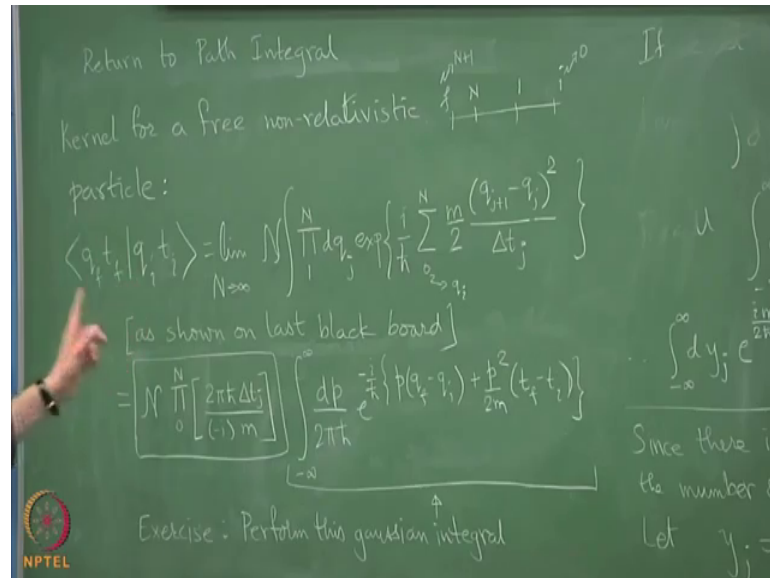 Return to Path Integral
Kernel for a free non-relativistic
f N+1 N 1 i 0
particle:
⟨q_f t_f | q_i t_i⟩ = lim_{N→∞} N ∫ ∏_1^N dq_j exp{ i/ħ ∑_{0→q_i}^N m/2 (q_{j+1} - q_j)^2 / Δt_j }
[as shown on last black board]
= N ∏_0^N [ 2πħ Δt_j / (-i) m ] ∫_{-∞}^{∞} dp/2πħ e^{-i/ħ { p(q_f - q_i) + p^2/2m (t_f - t_i) }}
Exercise: Perform this gaussian integral
If a
∫_{-∞}^{∞} dy_j e
Since there i
the number
Let y_j =
NPTEL